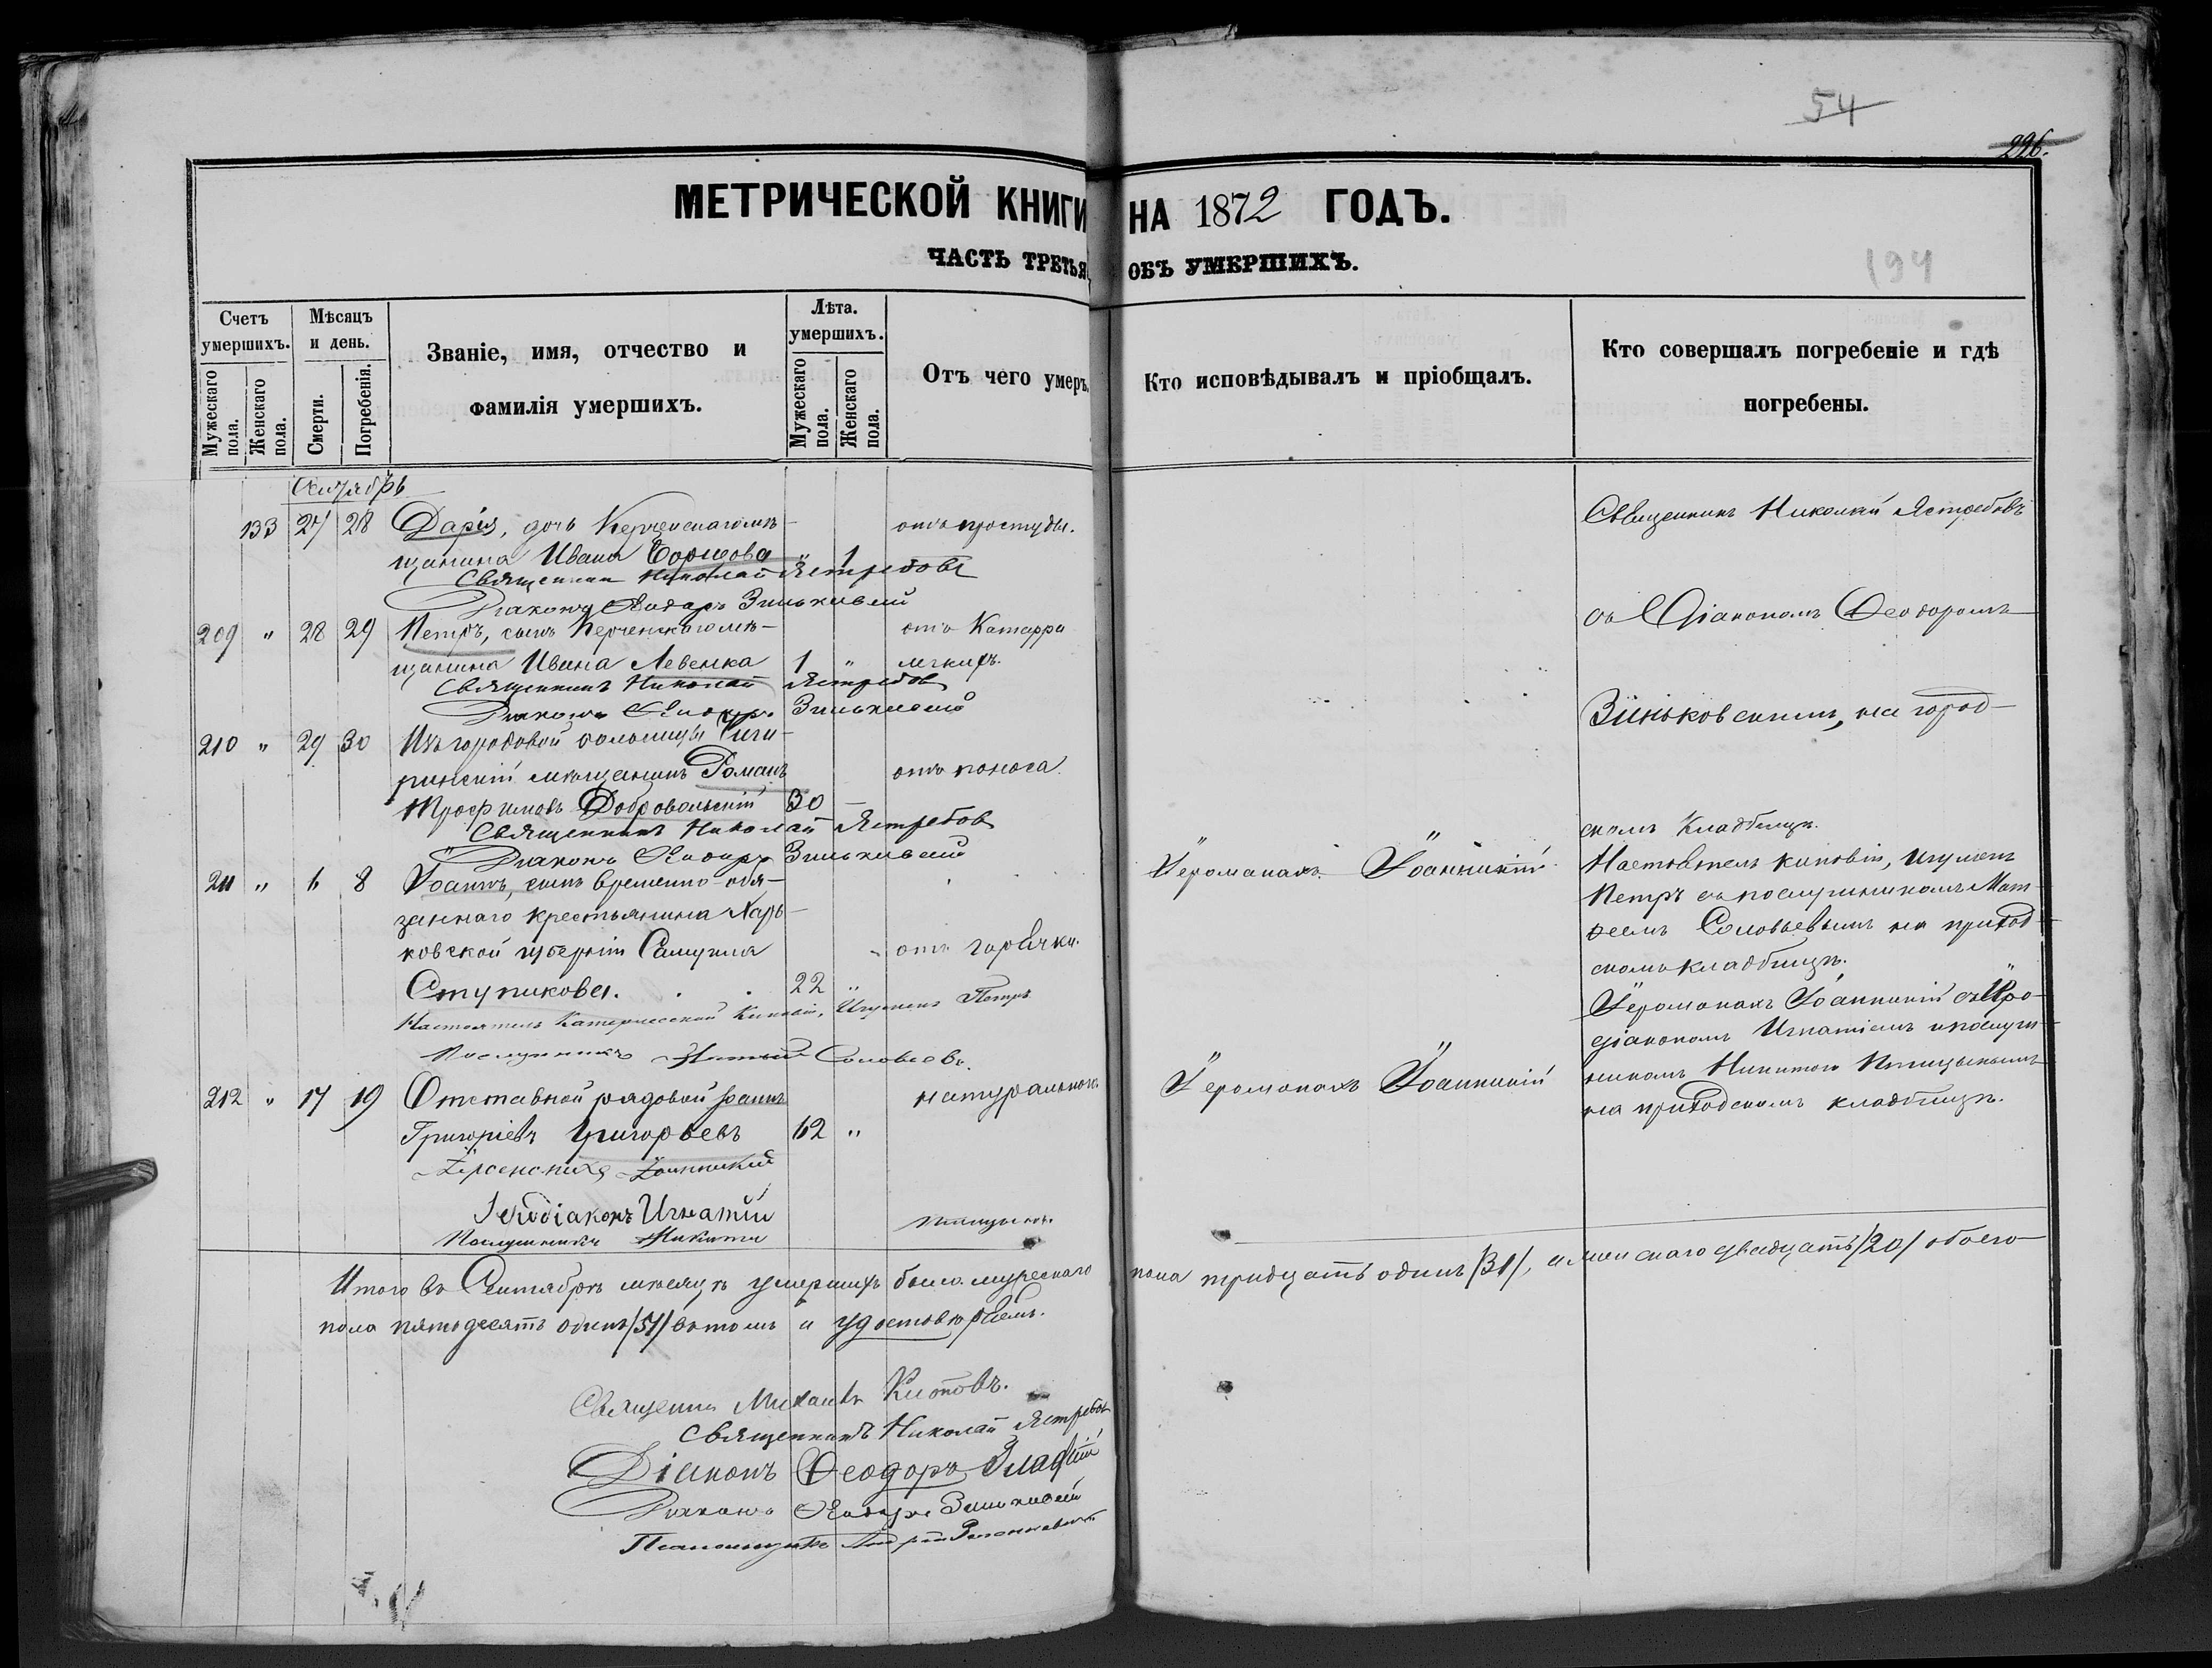 54
226.
МЕТРИЧЕСКОЙ КНИГИ НА 1872 ГОДЪ.
ЧАСТЬ ТРЕТЬЯ ОБЪ УМЕРШИХЪ.
194
Счетъ умершихъ.
Мужескаго пола.
Женскаго пола.
Мѣсяцъ и день.
Смерти.
Погребенія.
Званіе, имя, отчество и
фамилія умершихъ.
Лѣта.
умершихъ.
Мужескаго пола.
Женскаго пола.
Отъ чего умеръ.
Кто исповѣдывалъ и пріобщалъ.
Кто совершалъ погребеніе и гдѣ
погребены.
133 27 28 Дарія, дочь Керченскаго мѣ- отъ простуды.
щанина Ивана 1
Священникъ Николай Ястребовъ
Диаконъ Ѳеодоръ Зиньковский
209 " 28 29 Петръ, сынъ Керченскаго мѣ- отъ Катарра
щанина Ивана Левенка 1 " легкихъ.
Священникъ Николай Ястребовъ
Диаконъ Ѳеодоръ Зиньковский
210 " 29 30 Изъ городовой больницы Чиги-
ринскій мѣщанинъ Романъ отъ поноса.
Трофимовъ Добровольскій 30 —
Священникъ Николай Ястребовъ
Диаконъ Ѳеодоръ Зиньковский
Священникъ Николай Ястребовъ
съ Діакономъ Ѳеодоромъ
Зиньковскимъ, на город-
скомъ Кладбищѣ.
211 " 6 8 Іоаннъ, сынъ временно-обя-
заннаго крестьянина Харь-
ковской губерніи Самуила отъ горячки.
Ступикова. 22 "
Настоятель Катерлесской Киновіи, Игуменъ Петръ
Послушникъ Соловьевъ.
Іеромонахъ Іоанникій
Настоятель киновіи, Игуменъ
Петръ съ послушникомъ Мат-
ѳеемъ Соловьевымъ на приход-
скомъ кладбищѣ.
212 " 17 19 Отставной рядовой Іоаннъ натуральною
Григоріевъ Григорьевъ 62 "
Іоанникий
Іеродіаконъ Игнатій
Послушникъ Никита Птицынъ.
Іеромонахъ Іоанникій
Іеромонахъ Іоанникій съ Іеро-
діакономъ Игнатіемъ и послуш-
никомъ Никитою Птицынымъ
на приходскомъ кладбищѣ.
Итого въ Сентябрѣ мѣсяцѣ умершихъ было мужескаго пола тридцать одинъ /31/, а женскаго двадцать /20/ обоего
пола пятьдесятъ одинъ /51/ въ томъ и удостовѣряемъ.
Священникъ Михаилъ
Священникъ Николай Ястребовъ
Діаконъ Ѳеодоръ
Диаконъ Ѳеодоръ Зиньковский